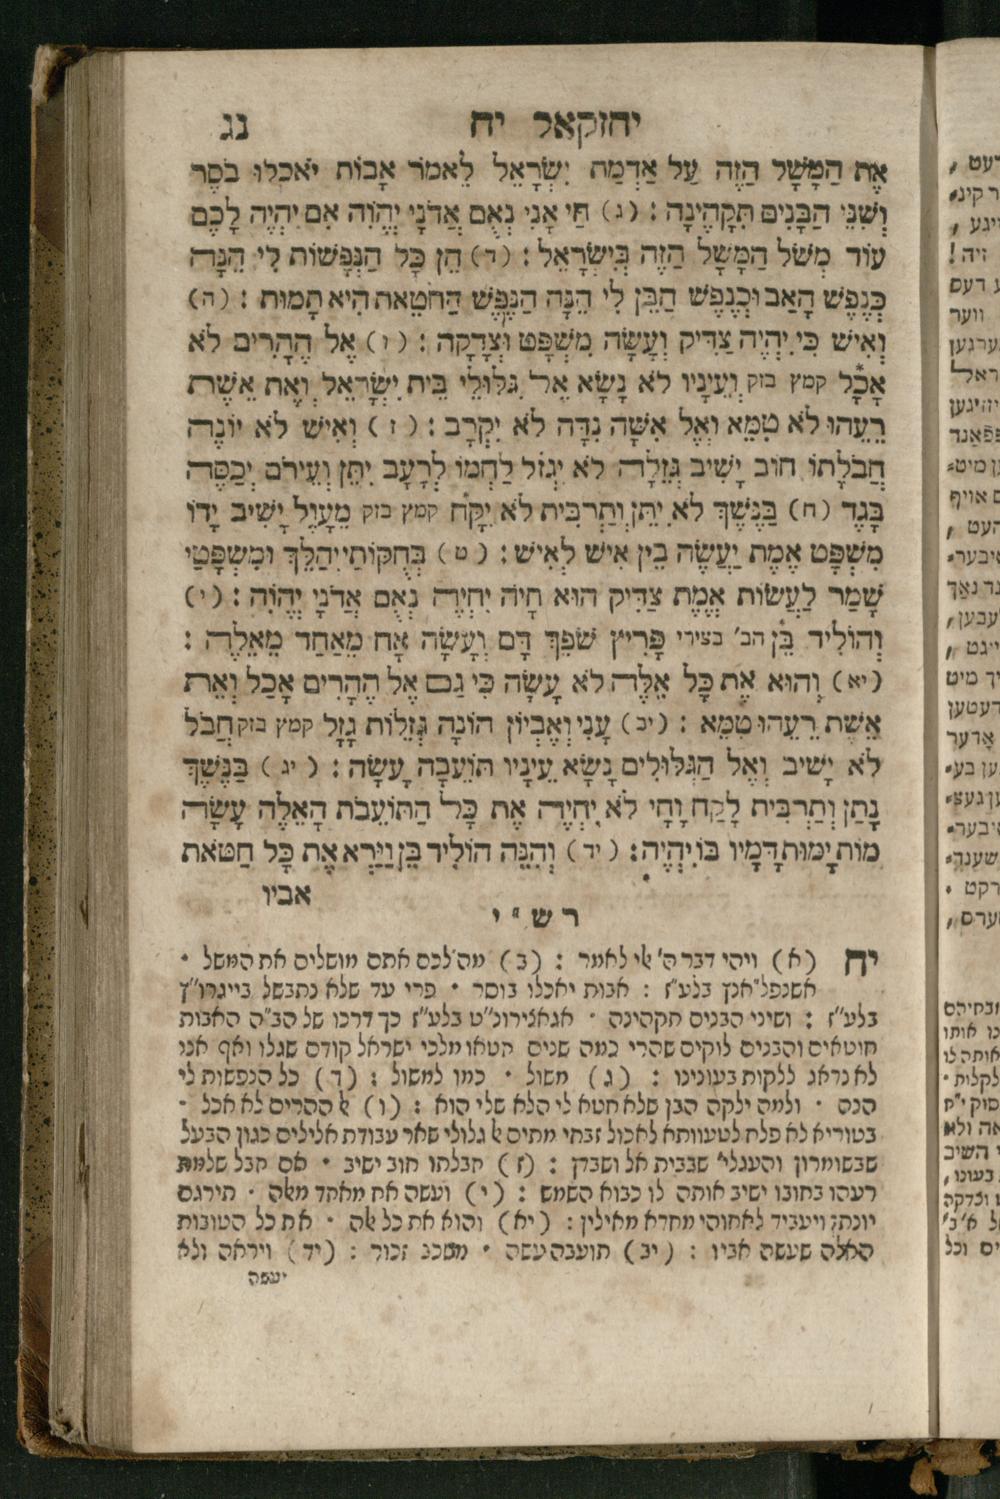 יחזקאל יח נג
אֶת הַמָּשָׁל הַזֶּה עַל אַדְמַת יִשְׂרָאֵל לֵאמֹר אָבוֹת יֹאכְלוּ בֹסֶר
וְשִׁנֵּי הַבָּנִים תִּקְהֶינָה : (ג) חַי אָנִי נְאֻם אֲדֹנָי יֱהֹוִה אִם יִהְיֶה לָכֶם
עוֹד מְשֹׁל הַמָּשָׁל הַזֶּה בְּיִשְׂרָאֵל : (ד) הֵן כָּל הַנְּפָשׁוֹת לִי הֵנָּה
כְּנֶפֶשׁ הָאָב וּכְנֶפֶשׁ הַבֵּן לִי הֵנָּה הַנֶּפֶשׁ הַחֹטֵאת הִיא תָמוּת : (ה)
וְאִישׁ כִּי יִהְיֶה צַדִּיק וְעָשָׂה מִשְׁפָּט וּצְדָקָה : (ו) אֶל הֶהָרִים לֹא
אָכָל קמץ בזק וְעֵינָיו לֹא נָשָׂא אֶל גִּלּוּלֵי בֵּית יִשְׂרָאֵל וְאֶת אֵשֶׁת
רֵעֵהוּ לֹא טִמֵּא וְאֶל אִשָּׁה נִדָּה לֹא יִקְרָב : (ז) וְאִישׁ לֹא יוֹנֶה
חֲבֹלָתוֹ חוֹב יָשִׁיב גְּזֵלָה לֹא יִגְזֹל לַחְמוֹ לְרָעֵב יִתֵּן וְעֵירֹם יְכַסֶּה
בָּגֶד (ח) בַּנֶּשֶׁךְ לֹא יִתֵּן וְתַרְבִּית לֹא יִקָּח קמץ בזק מֵעָוֶל יָשִׁיב יָדוֹ
מִשְׁפָּט אֱמֶת יַעֲשֶׂה בֵּין אִישׁ לְאִישׁ : (ט) בְּחֻקּוֹתַי יְהַלֵּךְ וּמִשְׁפָּטַי
שָׁמַר לַעֲשׂוֹת אֱמֶת צַדִּיק הוּא חָיֹה יִחְיֶה נְאֻם אֲדֹנָי יֱהֹוִה : (י)
וְהוֹלִיד בֵּן הב' בצירי פָּרִיץ שֹׁפֵךְ דָּם וְעָשָׂה אָח מֵאַחַד מֵאֵלֶּה :
(יא) וְהוּא אֶת כָּל אֵלֶּה לֹא עָשָׂה כִּי גַם אֶל הֶהָרִים אָכַל וְאֶת
אֵשֶׁת רֵעֵהוּ טִמֵּא : (יב) עָנִי וְאֶבְיוֹן הוֹנָה גְּזֵלוֹת גָּזָל קמץ בזק חֲבֹל
לֹא יָשִׁיב וְאֶל הַגִּלּוּלִים נָשָׂא עֵינָיו תּוֹעֵבָה עָשָׂה : (יג) בַּנֶּשֶׁךְ
נָתַן וְתַרְבִּית לָקַח וָחָי לֹא יִחְיֶה אֵת כָּל הַתּוֹעֵבֹת הָאֵלֶּה עָשָׂה
מוֹת יָמוּת דָּמָיו בּוֹ יִהְיֶה : (יד) וְהִנֵּה הוֹלִיד בֵּן וַיַּרְא אֶת כָּל חַטֹּאת
אביו
רש"י
יח (א) ויהי דבר ה' אלי לאמר : (ב) מה לכם אתם מושלים את המשל •
אשנפלאנץ בלע"ז : אבות יאכלו בוסר • פרי עד שלא נתבשל בייגרו"ץ
בלע"ז : ושיני הבנים תקהינה • אגאזירונ"ט בלע"ז כך דרכו של הב"ה האבות
חוטאים והבנים לוקים שהרי כמה שנים חטאו מלכי ישראל קודם שגלו ואף אנו
לא נדאג ללקות בעונינו : (ג) משול • כמו למשול : (ד) כל הנפשות לי
הנה • ולמה ילקה הבן שלא חטא לי הלא שלי הוא : (ו) אל ההרים לא אכל •
בטוריא לא פלח לטעוותא לאכול זבחי מתים אל גלולי שאר עבודת אלילים כגון הבעל
שבשומרון והעגלי' שבבית אל ושבדן : (ז) חבלתו חוב ישיב • אם חבל שלמת
רעהו בחובו ישיב אותה לו כבוא השמש : (י) ועשה אח מאחד מאלה • תירגם
יונתן ויעביד לאחוהי מחדא מאילין : (יא) והוא את כל אלה • את כל הטובות
האלה שעשה אביו : (יב) תועבה עשה • משכב זכור : (יד) ויראה ולא
יעשה